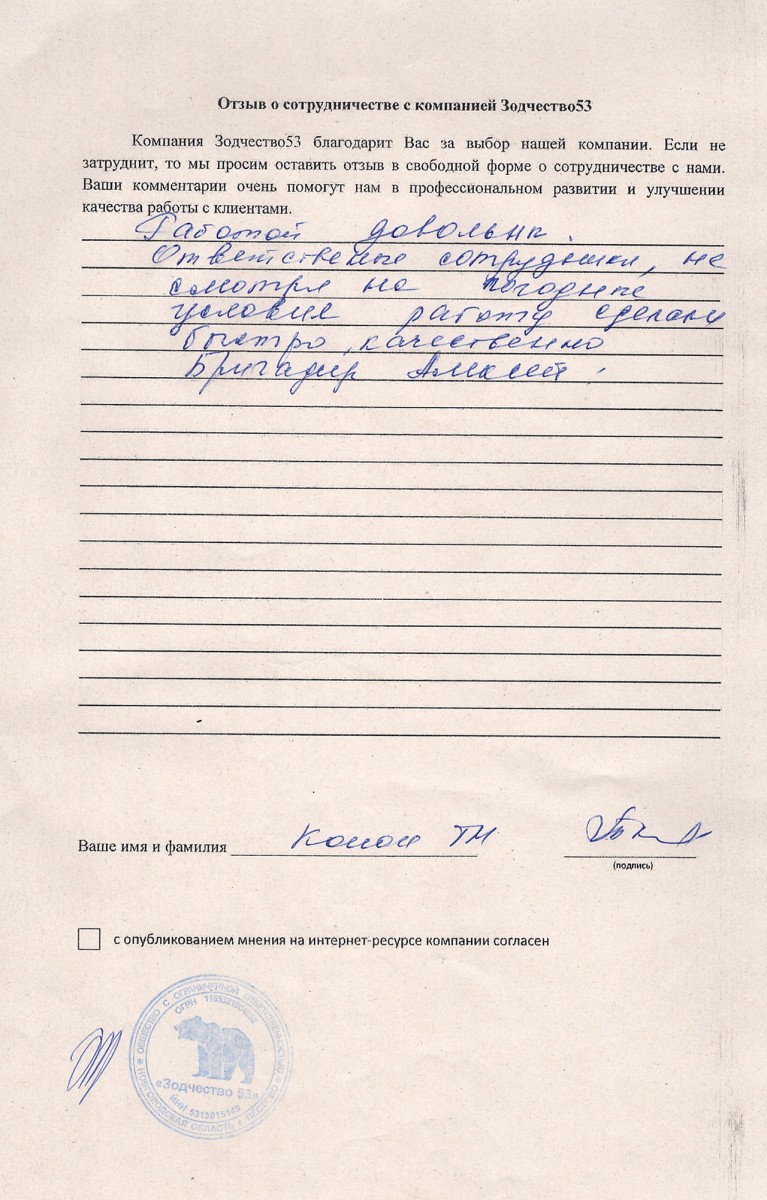 Отзыв о сотрудничестве с компанией Зодчество53
Компания Зодчество53 благодарит Вас за выбор нашей компании. Если не
затруднит, то мы просим оставить отзыв в свободной форме о сотрудничестве с нами.
Ваши комментарии очень помогут нам в профессиональном развитии и улучшении
качества работы с клиентами.
Работой довольны.
Ответственные сотрудники, не
смотря на погодные
условия работу сделали
быстро, качественно
Бригадир Алексей.
Ваше имя и фамилия ТН
(подпись)
с опубликованием мнения на интернет-ресурсе компании согласен
ОБЩЕСТВО С ОГРАНИЧЕННОЙ ОТВЕТСТВЕННОСТЬЮ
ОГРН
«Зодчество 53»
ИНН 5313015149
НОВГОРОДСКАЯ ОБЛАСТЬ